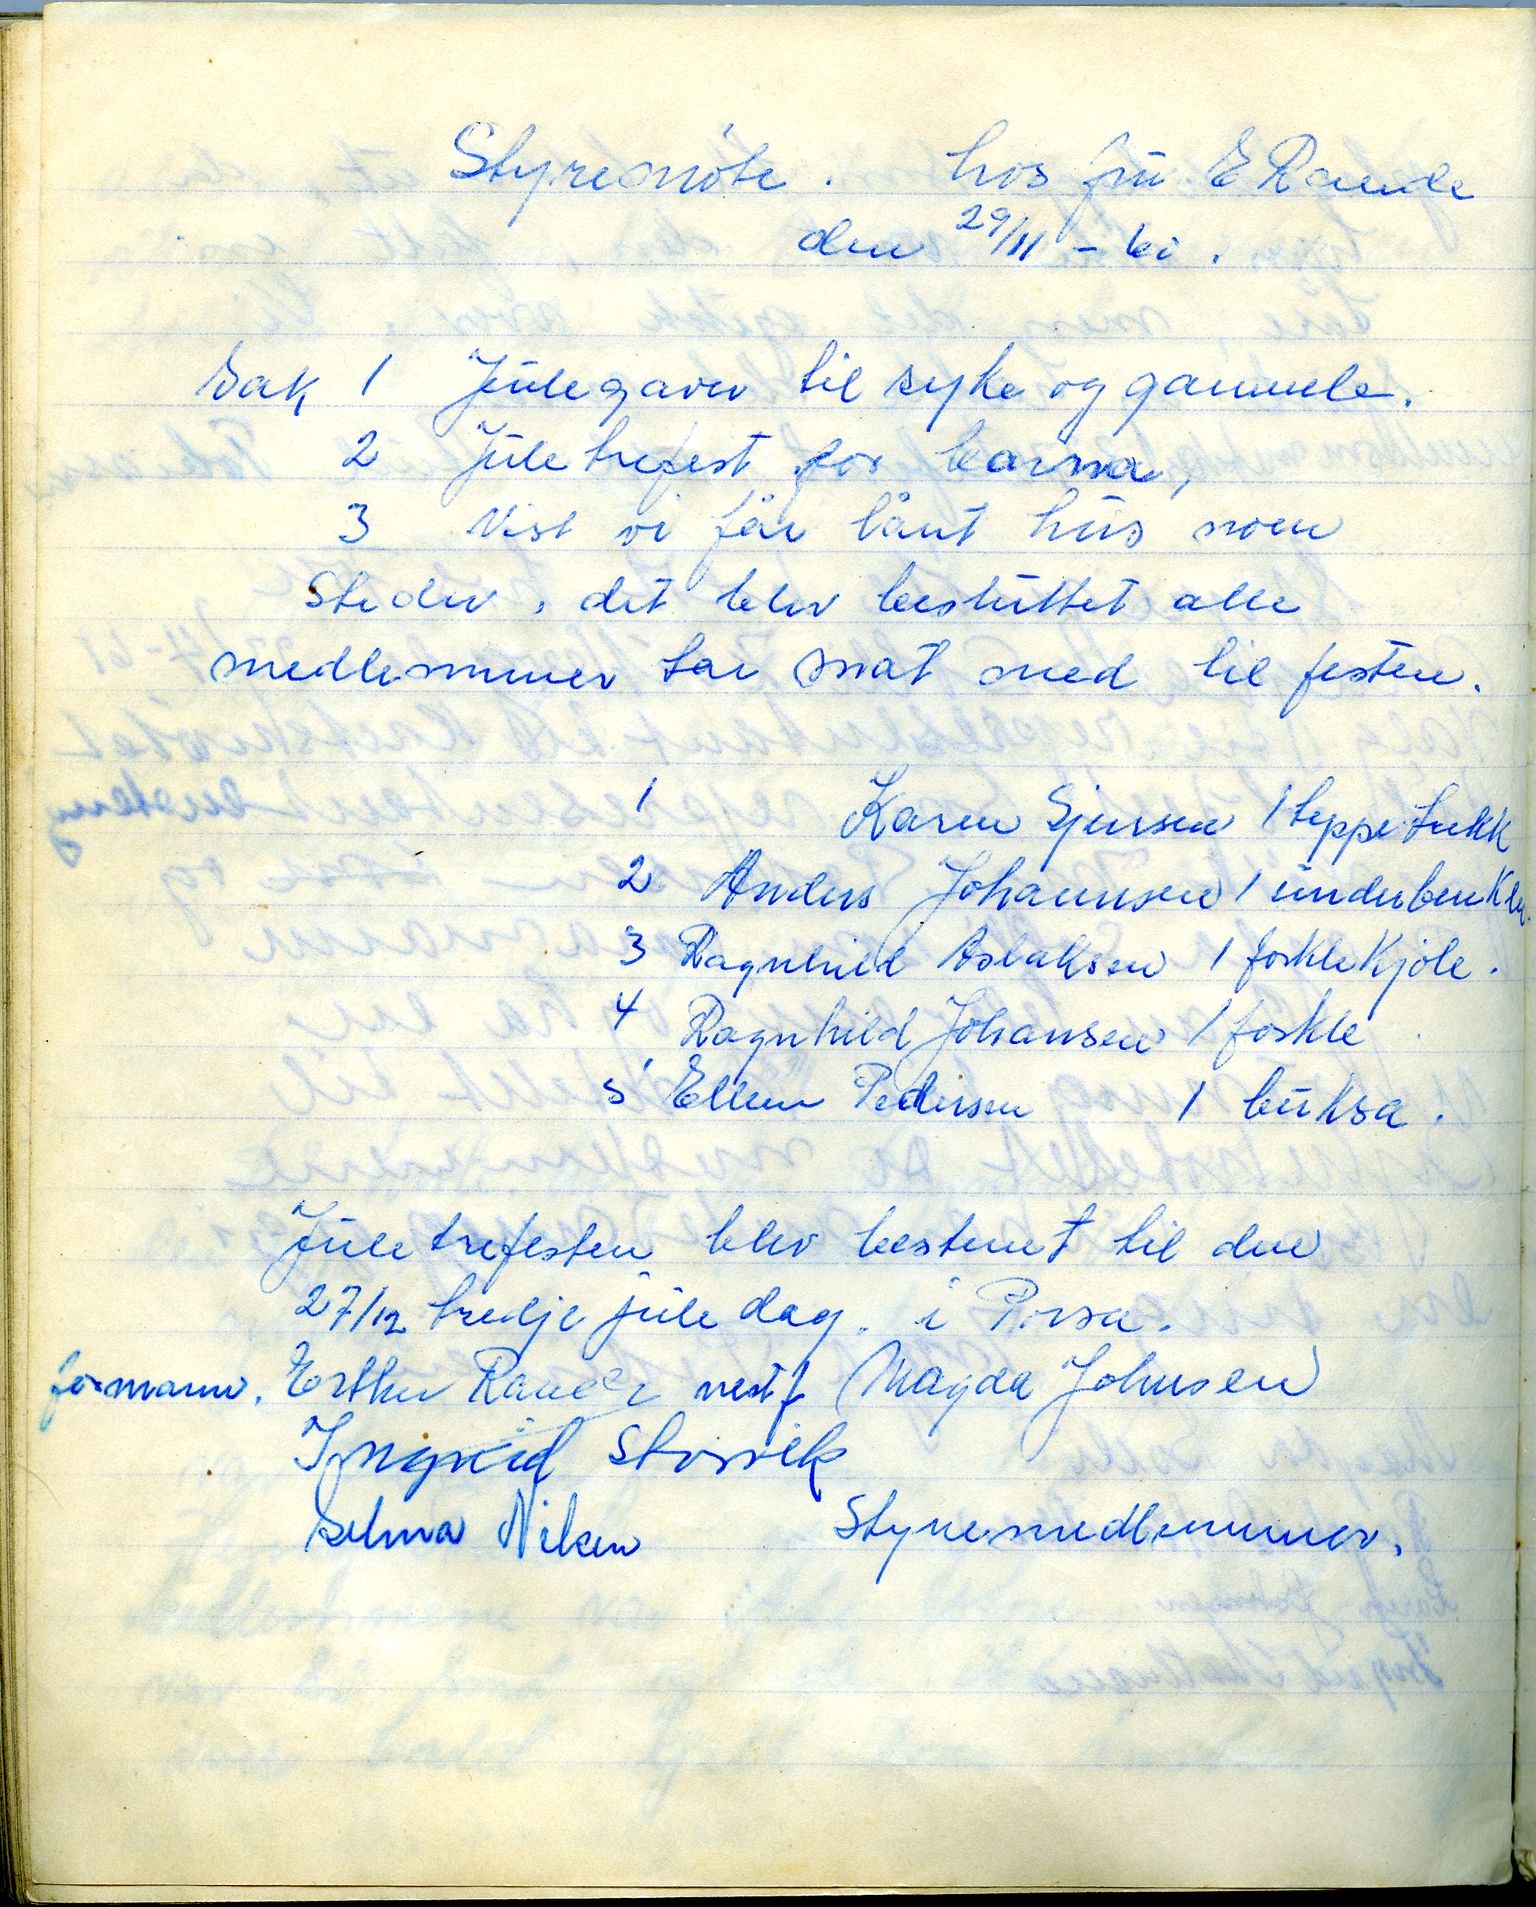 Styremöte. hos frü E Rande
den 29/11 - 61.
Sak 1 Jülegaver til syke og gammele.
2 Jületrefest for barna,
3 Vist vi får lånt hüs noen
Steder, det blev besluttet alle
medlemmer tar mat med til festen.
1 Karen Sjursen 1 teppe trekk
2 Anders Johannsen 1 ünderbenkler.
3 Ragnhild Aslaksen 1 forkle Kjole.
4 Ragnhild Johansen 1 forkle
5 Ellen Pedersen 1 büksa.
Jületrefesten blev bestemt til den
27/12 tredje jüledag. i Porsa.
formann. Esther nestf Magda Johnsen
Ingrid Storvik
Selma Nilsen Styremedlemmer.